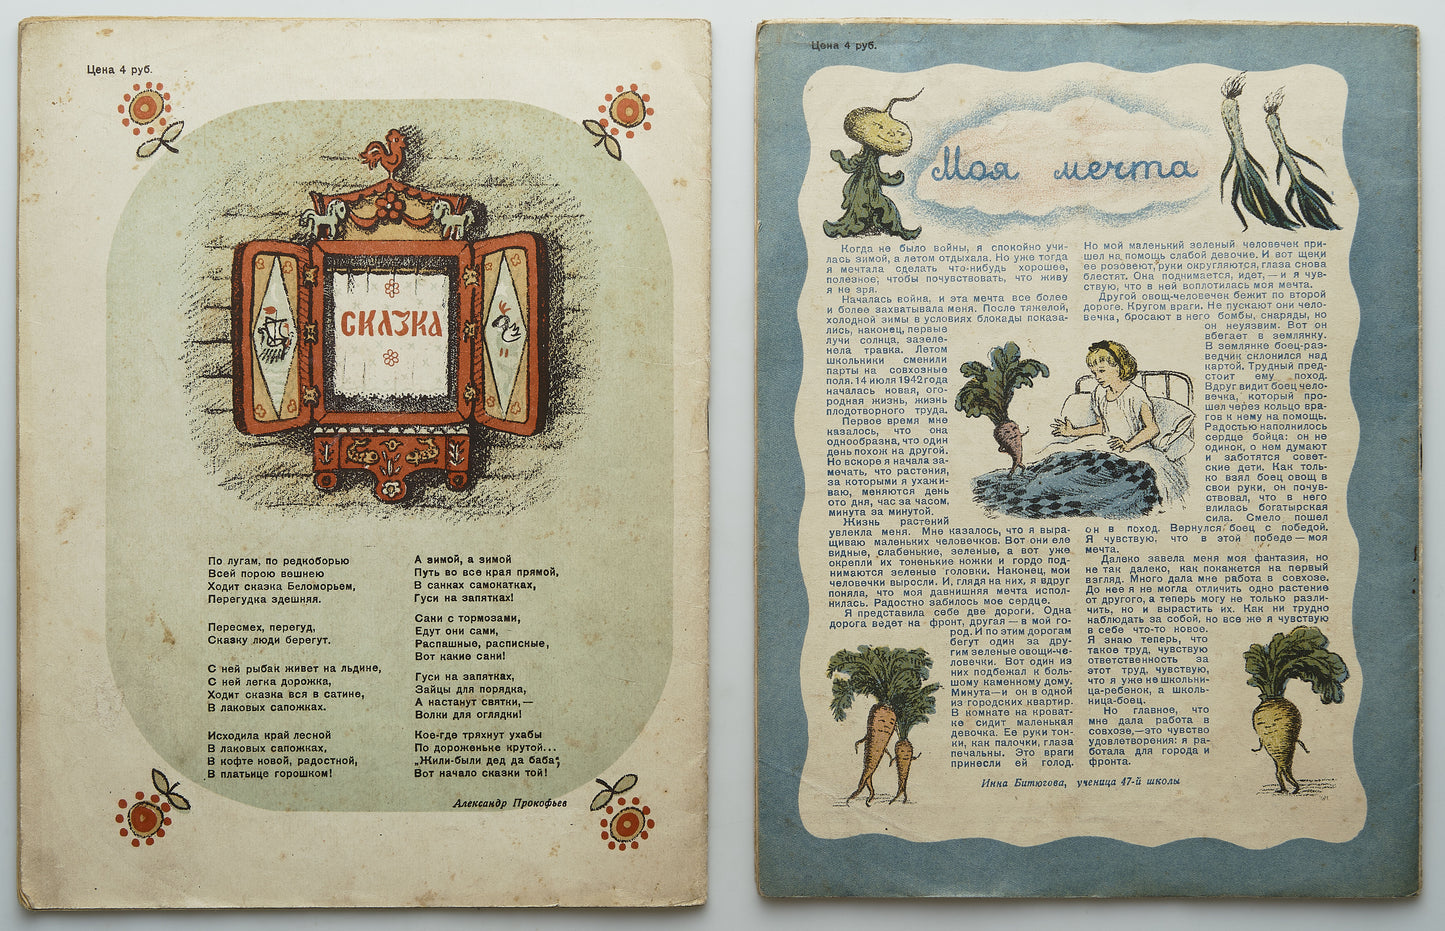 Цена 4 руб.
СКАЗКА
По лугам, по редкоборью
Всей порою вешнею
Ходит сказка Беломорьем,
Перегудка здешняя.
Пересмех, перегуд,
Сказку люди берегут.
С ней рыбак живет на льдине,
С ней легка дорожка,
Ходит сказка вся в сатине,
В лаковых сапожках.
Исходила край лесной
В лаковых сапожках,
В кофте новой, радостной,
В платьице горошком!
А зимой, а зимой
Путь во все края прямой,
В санках самокатках,
Гуси на запятках!
Сани с тормозами,
Едут они сами,
Распашные, расписные,
Вот какие сани!
Гуси на запятках,
Зайцы для порядка,
А настанут святки,—
Волки для оглядки!
Кое-где тряхнут ухабы
По дороженьке крутой...
„Жили-были дед да баба“,
Вот начало сказки той!
Александр Прокофьев
Цена 4 руб.
Моя мечта
Когда не было войны, я спокойно учи-
лась зимой, а летом отдыхала. Но уже тогда
я мечтала сделать что-нибудь хорошее,
полезное, чтобы почувствовать, что живу
я не зря.
Началась война, и эта мечта все более
и более захватывала меня. После тяжелой,
холодной зимы в условиях блокады показа-
лись, наконец, первые
лучи солнца, зазеле-
нела травка. Летом
школьники сменили
парты на совхозные
поля. 14 июля 1942 года
началась новая, ого-
родная жизнь, жизнь
плодотворного труда.
Первое время мне
казалось, что она
однообразна, что один
день похож на другой.
Но вскоре я начала за-
мечать, что растения,
за которыми я ухажи-
ваю, меняются день
ото дня, час за часом,
минута за минутой.
Жизнь растений
увлекла меня. Мне казалось, что я выра-
щиваю маленьких человечков. Вот они еле
видные, слабенькие, зеленые, а вот уже
окрепли их тоненькие ножки и гордо под-
нимаются зеленые головки. Наконец, мои
человечки выросли. И, глядя на них, я вдруг
поняла, что моя давнишняя мечта испол-
нилась. Радостно забилось мое сердце.
Я представила себе две дороги. Одна
дорога ведет на фронт, другая — в мой го-
род. И по этим дорогам
бегут один за дру-
гим зеленые овощи-че-
ловечки. Вот один из
них подбежал к боль-
шому каменному дому.
Минута—и он в одной
из городских квартир.
В комнате на кроват-
ке сидит маленькая
девочка. Ее руки тон-
ки, как палочки, глаза
печальны. Это враги
принесли ей голод.
Но мой маленький зеленый человечек при-
шел на помощь слабой девочке. И вот щеки
ее розовеют, руки округляются, глаза снова
блестят. Она поднимается, идет, — и я чув-
ствую, что в ней воплотилась моя мечта.
Другой овощ-человечек бежит по второй
дороге. Кругом враги. Не пускают они чело-
вечка, бросают в него бомбы, снаряды, но
он неуязвим. Вот он
вбегает в землянку.
В землянке боец-раз-
ведчик склонился над
картой. Трудный пред-
стоит ему поход.
Вдруг видит боец чело-
вечка, который про-
шел через кольцо вра-
гов к нему на помощь.
Радостью наполнилось
сердце бойца: он не
одинок, о нем думают
и заботятся совет-
ские дети. Как толь-
ко взял боец овощ в
свои руки, он почув-
ствовал, что в него
влилась богатырская
сила. Смело пошел
он в поход. Вернулся боец с победой.
Я чувствую, что в этой победе — моя
мечта.
Далеко завела меня моя фантазия, но
не так далеко, как покажется на первый
взгляд. Много дала мне работа в совхозе.
До нее я не могла отличить одно растение
от другого, а теперь могу не только разли-
чить, но и вырастить их. Как ни трудно
наблюдать за собой, но все же я чувствую
в себе что-то новое.
Я знаю теперь, что
такое труд, чувствую
ответственность за
этот труд, чувствую,
что я уже не школьни-
ца-ребенок, а школь-
ница-боец.
Но главное, что
мне дала работа в
совхозе,—это чувство
удовлетворения: я ра-
ботала для города и
фронта.
Инна Битюгова, ученица 47-й школы